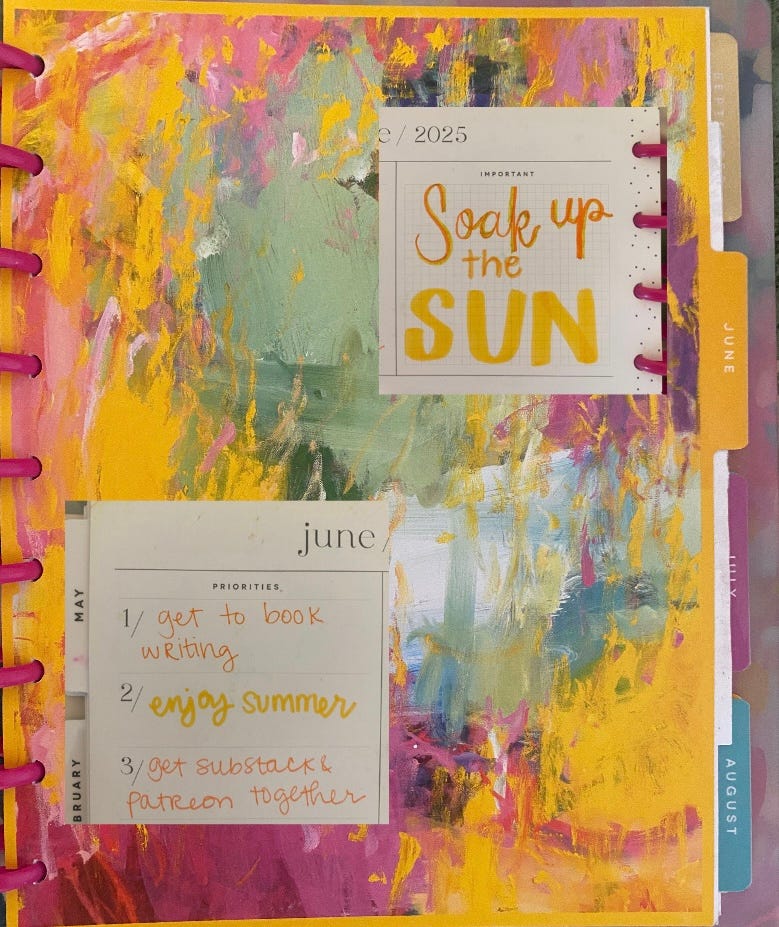 e / 2025
IMPORTANT
Soak up
the
SUN
june /
PRIORITIES
1/ get to book
writing
2/ enjoy summer
3/ get substack &
patreon together
MAY
BRUARY
SEPT
JUNE
JULY
AUGUST